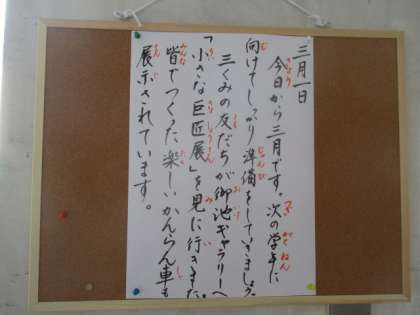 三月一日
今日から三月です。次の学年に
向けてしっかり準備をしていきましょう。
三くみの友だちが御池ギャラリーへ
「小さな巨匠展」を見に行きました。
皆でつくった楽しいかんらん車も
展示されています。